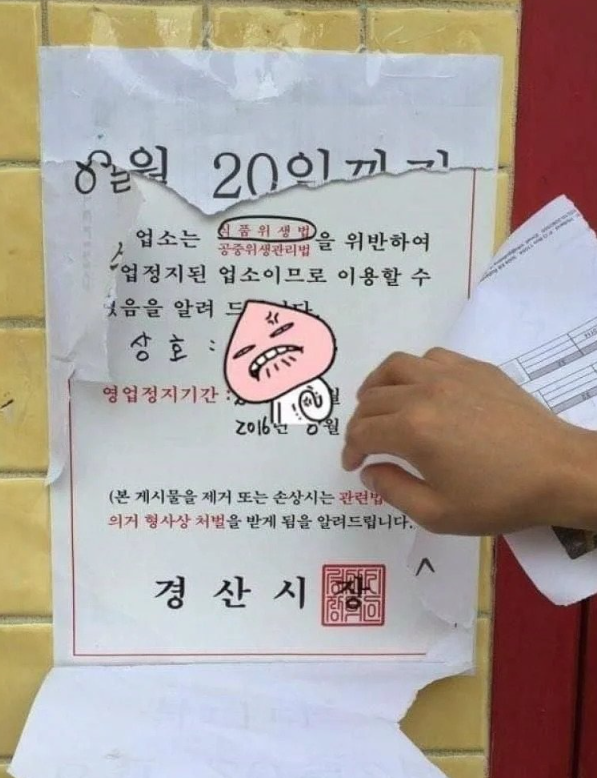 8월 20일까지
업소는 식품위생법
공중위생관리법 을 위반하여
업정지된 업소이므로 이용할 수
없음을 알려 드립니다.
상호 :
영업정지기간 :
2016년 8월
(본 게시물을 제거 또는 손상시는 관련법
의거 형사상 처벌을 받게 됨을 알려드립니다.
경산시장